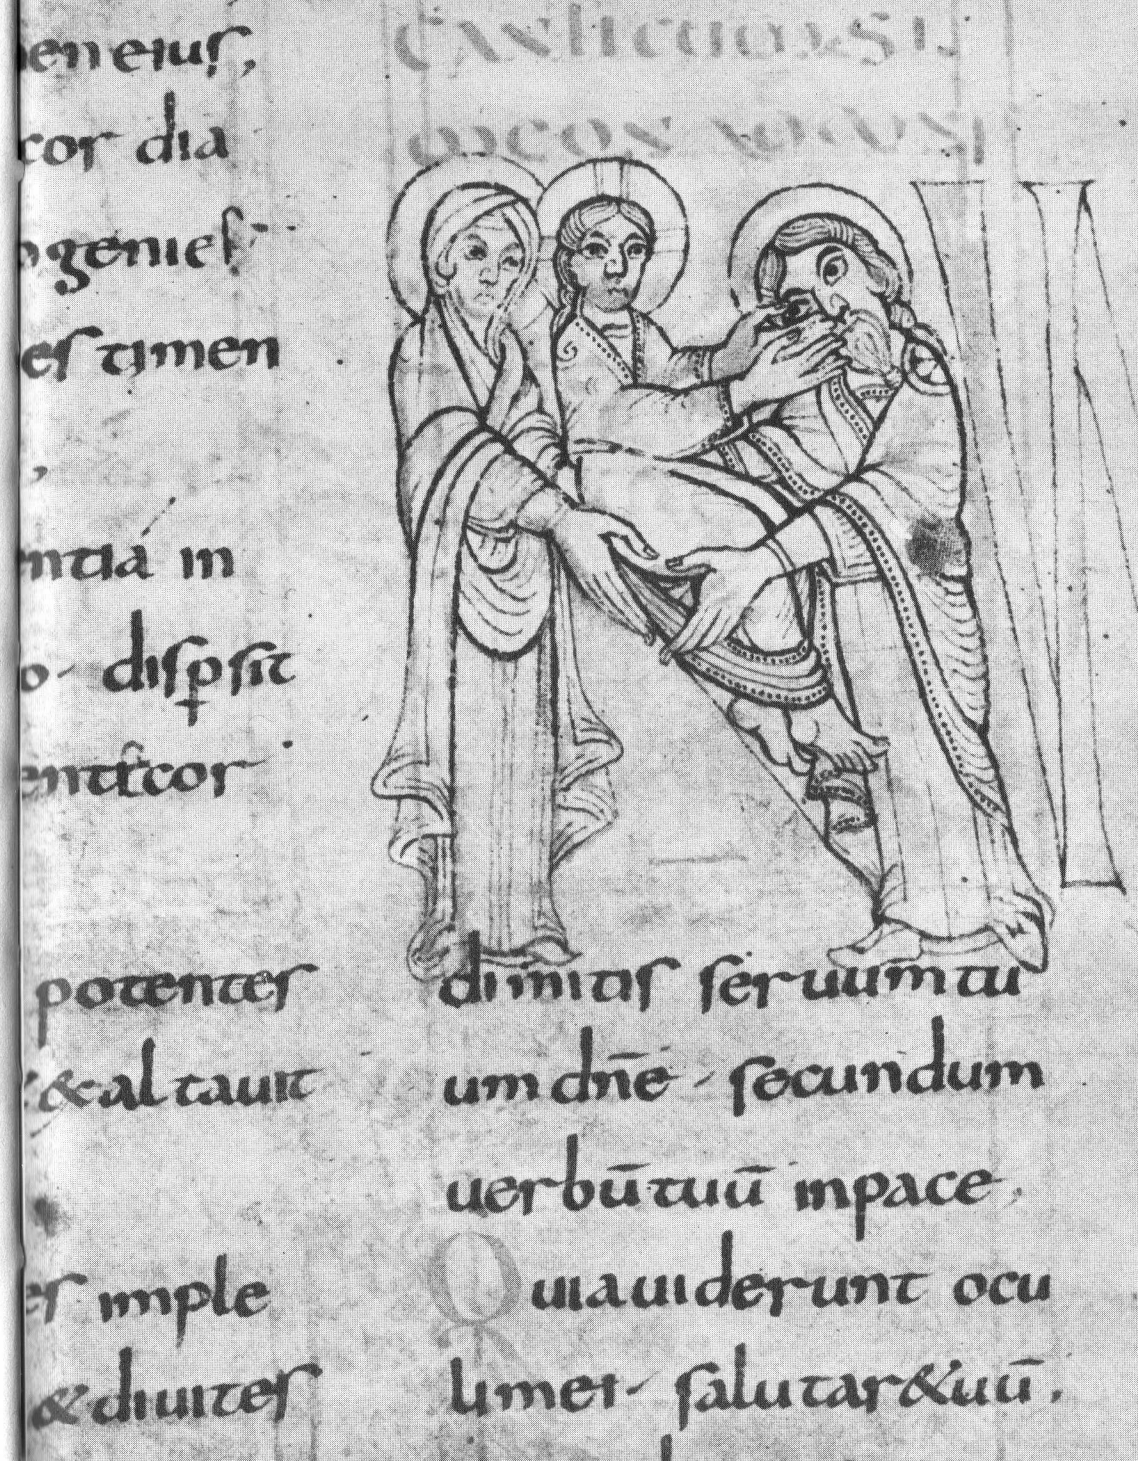 men eius,
cor dia
ogenies
es timen
entia in
o disp sit
potentes
& altauit
es imple
& diuites
CANTICUM SI
N
dimitis seruum tu
um dn̄e secundum
uerbū tuū inpace
Quia uiderunt ocu
li mei salutar&uū.